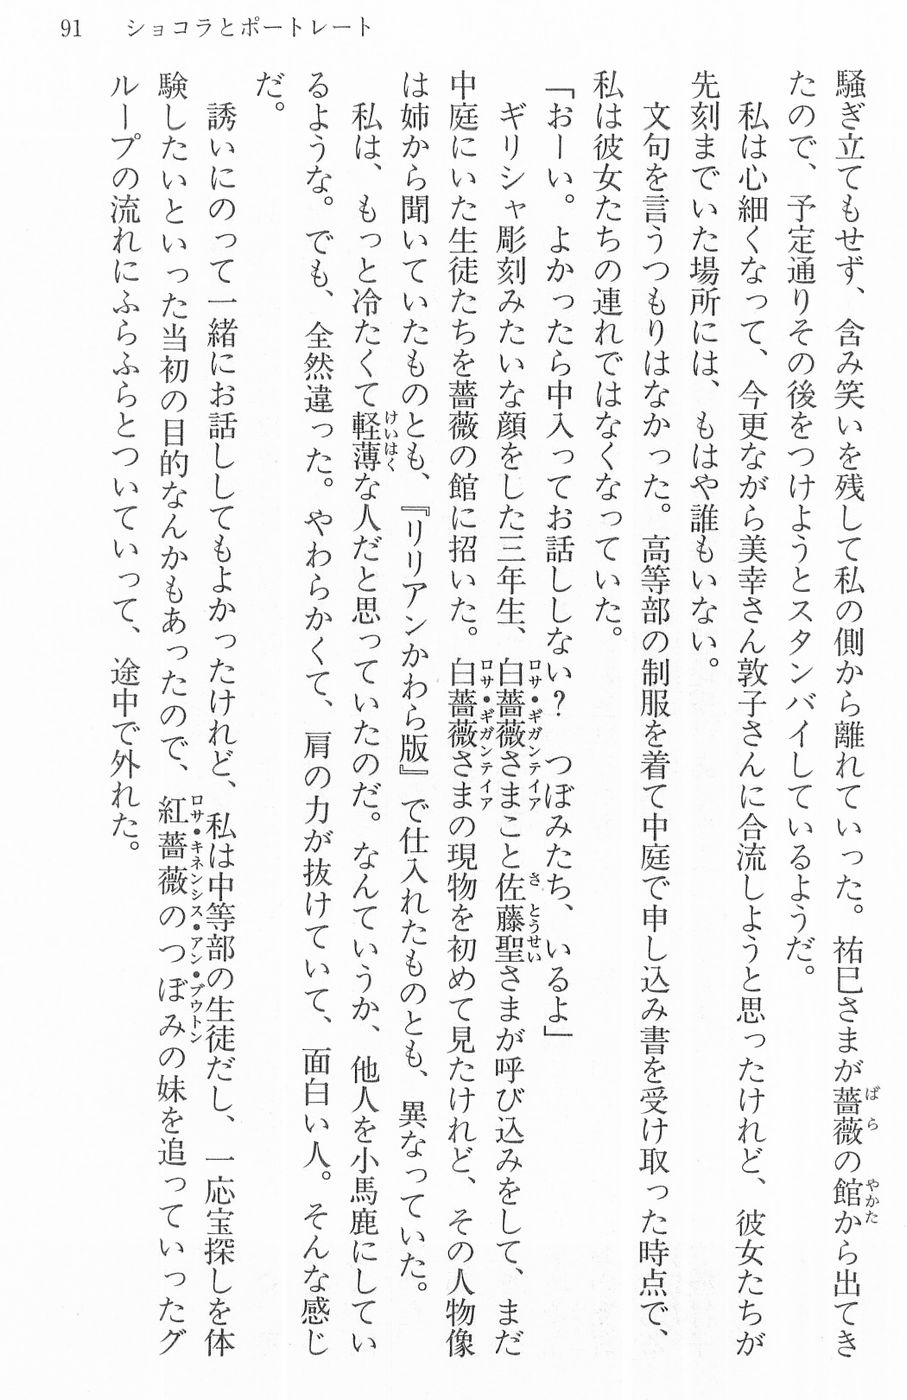 91　ショコラとポートレート
騒ぎ立てもせず、含み笑いを残して私の側から離れていった。祐巳さまが薔薇の館から出てき
たので、予定通りその後をつけようとスタンバイしているようだ。
　私は心細くなって、今更ながら美幸さん敦子さんに合流しようと思ったけれど、彼女たちが
先刻までいた場所には、もはや誰もいない。
　文句を言うつもりはなかった。高等部の制服を着て中庭で申し込み書を受け取った時点で、
私は彼女たちの連れではなくなっていた。
「おーい。よかったら中入ってお話ししない？　つぼみたち、いるよ」
　ギリシャ彫刻みたいな顔をした三年生、白薔薇さまこと佐藤聖さまが呼び込みをして、まだ
中庭にいた生徒たちを薔薇の館に招いた。白薔薇さまの現物を初めて見たけれど、その人物像
は姉から聞いていたものとも、『リリアンかわら版』で仕入れたものとも、異なっていた。
　私は、もっと冷たくて軽薄な人だと思っていたのだ。なんていうか、他人を小馬鹿にしてい
るような。でも、全然違った。やわらかくて、肩の力が抜けていて、面白い人。そんな感じ
だ。
　誘いにのって一緒にお話ししてもよかったけれど、私は中等部の生徒だし、一応宝探しを体
験したいといった当初の目的なんかもあったので、紅薔薇のつぼみの妹を追っていったグ
ループの流れにふらふらとついていって、途中で外れた。